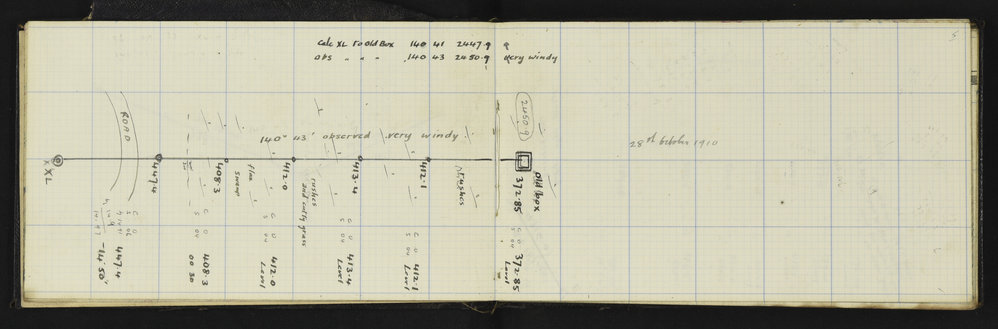 Calc XL to Old Box 140 41 2447.9
Obs " " " 140 43 2450.9 very windy
140° 43' observed very windy
28th October 1910
2450.9
ROAD
XL
447.4
408.3
flax
swamp
412.0
rushes
and cutty grass
413.4
412.1
rushes
old box
372.85
447.4
14 50'
408.3
00 30
412.0
Level
413.4
Level
412.1
Level
372.85
Level